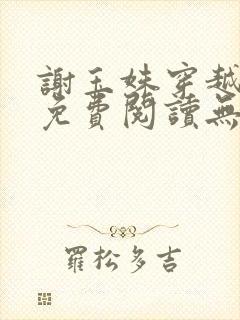 謝玉妹穿越
免費閱讀無
羅松多吉